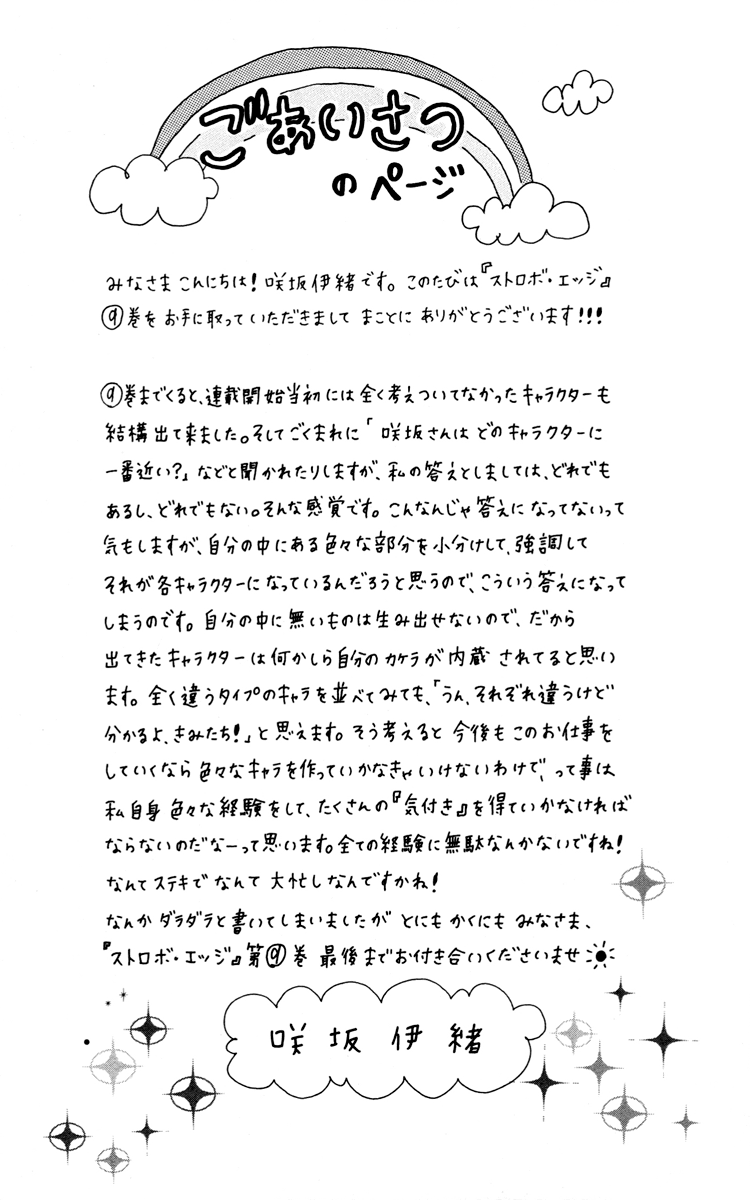 ごあいさつ
のページ
みなさまこんにちは!咲坂伊緒です。このたびは『ストロボ・エッジ』
⑨巻をお手に取っていただきましてまことにありがとうございます!!!
⑨巻までくると、連載開始当初には全く考えついてなかったキャラクターも
結構出て来ました。そしてごくまれに「咲坂さんはどのキャラクターに
一番近い?」などと聞かれたりしますが、私の答えとしましては、どれでも
あるし、どれでもない。そんな感覚です。こんなんじゃ答えになってないって
気もしますが、自分の中にある色々な部分を小分けして、強調して
それが各キャラクターになっているんだろうと思うので、こういう答えになって
しまうのです。自分の中に無いものは生み出せないので、だから
出てきたキャラクターは何かしら自分のカケラが内蔵されてると思い
ます。全く違うタイプのキャラを並べてみても、「うん、それぞれ違うけど
分かるよ、きみたち!」と思えます。そう考えると今後もこのお仕事を
していくなら色々なキャラを作っていかなきゃいけないわけで、って事は
私自身色々な経験をして、たくさんの『気付き』を得ていかなければ
ならないのだなーって思います。全ての経験に無駄なんかないですね!
なんてステキでなんて大忙しなんですかね!
なんかダラダラと書いてしまいましたがとにもかくにもみなさま、
『ストロボ・エッジ』第⑨巻最後までお付き合いくださいませ
咲坂伊緒